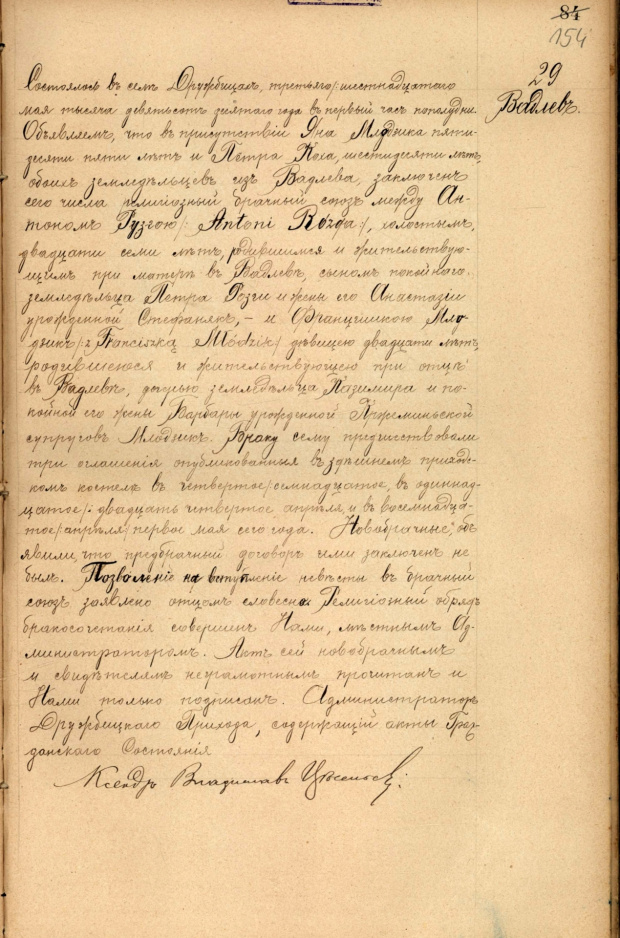 84
154
29
Вадлевъ.
Состоялось въ селѣ Дружбицахъ, третьяго /: шестнадцатаго
мая тысяча девятьсотъ десятаго года въ первый часъ пополудни.
Объявляемъ, что въ присутствіи Яна Млодзика пяти-
десяти пяти лѣтъ и Петра Коха, шестидесяти лѣтъ,
обоихъ земледѣльцевъ изъ Вадлева, заключенъ
сего числа религіозный брачный союзъ между Ан-
тономъ Рузгою /: Antoni Rózga :/, холостымъ,
двадцати семи лѣтъ, родившимся и жительствую-
щимъ при матери въ Вадлевѣ, сыномъ покойнаго
земледѣльца Петра Розги и жены его Анастазіи
урожденной Стефанякъ, – и Францишкою Мло-
дзикъ /: z Franciszką Młodzik :/ дѣвицею двадцати лѣтъ,
родившеюся и жительствующею при отцѣ
въ Вадлевѣ, дочерью земледѣльца Казимира и по-
койной его жены Варвары урожденной
супруговъ Млодзикъ. Браку сему предшествовали
три оглашенія опубликованныя въ здѣшнемъ приход-
скомъ костелѣ въ четвертое /: семнадцатое, въ одиннад-
цатое /: двадцать четвертое апрѣля, и въ восемнадца-
тое /: апрѣля /: первое мая сего года. Новобрачные объ-
явили, что предбрачный договоръ ими заключенъ не
былъ. Позволеніе на вступленіе невѣсты въ брачный
союзъ заявлено отцомъ словесно. Религіозный обрядъ
бракосочетанія совершенъ Нами, мѣстнымъ Ад-
министраторомъ. Актъ сей новобрачнымъ
и свидѣтелямъ неграмотнымъ прочитанъ и
Нами только подписанъ. Администраторъ
Дружбицкаго Прихода, содержащій акты Граж-
данскаго Состоянія
Ксендзъ Владиславъ